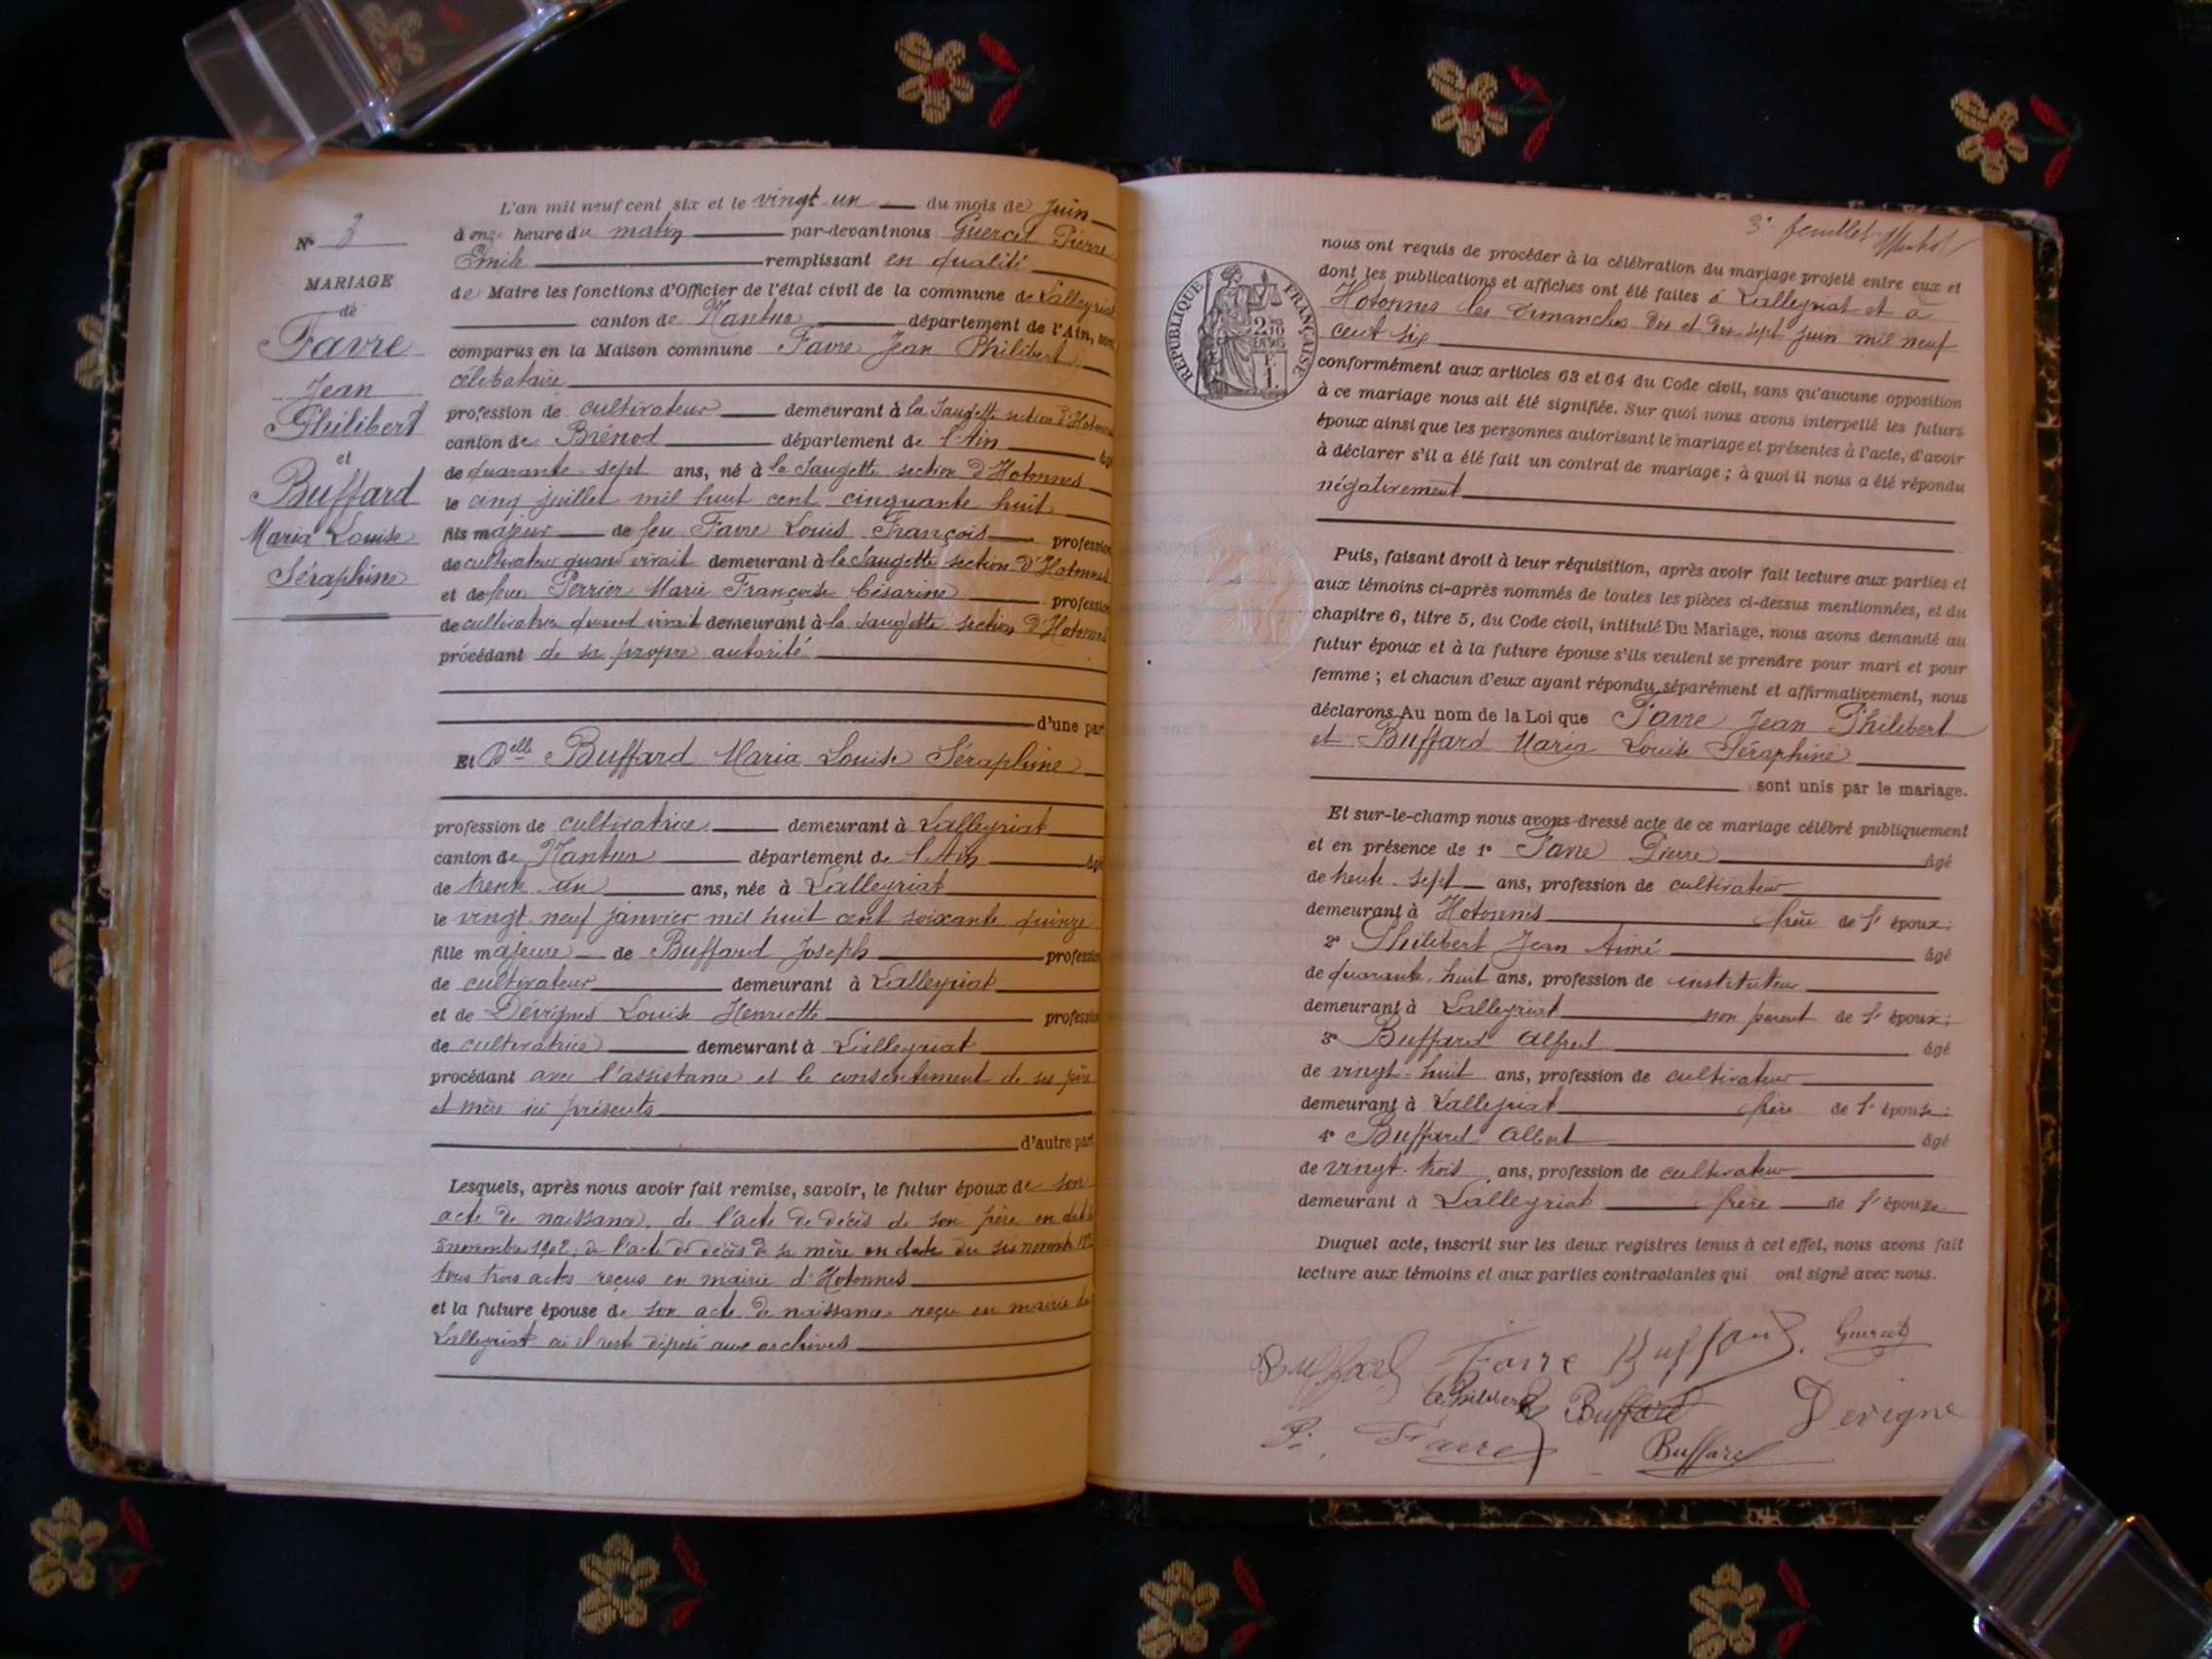 N° 3
MARIAGE
de
Favre
Jean
Philibert
et
Buffard
Maria Louise
Séraphine
L'an mil neuf cent six et le vingt un du mois de Juin
à onze heure du matin par-devant nous Guercet Pierre
Emile remplissant en qualité
de Maire les fonctions d'Officier de l'état civil de la commune de Lalleyriat
canton de Nantua département de l'Ain, sont
comparus en la Maison commune Favre Jean Philibert
célibataire
profession de cultivateur demeurant à la Saugette section d'Hotonnes
canton de Brénod département de l'Ain âgé
de quarante-sept ans, né à la Saugette section d'Hotonnes
le cinq juillet mil huit cent cinquante huit
fils majeur de feu Favre Louis François profession
de cultivateur quand vivait demeurant à la Saugette section d'Hotonnes
et de feue Perrier Marie Françoise Césarine profession
de cultivatrice quand vivait demeurant à la Saugette section d'Hotonnes
procédant de sa propre autorité
d'une part
Et Delle Buffard Maria Louise Séraphine
profession de cultivatrice demeurant à Lalleyriat
canton de Nantua département de l'Ain âgé
de trente-un ans, née à Lalleyriat
le vingt-neuf janvier mil huit cent soixante quinze
fille majeure de Buffard Joseph profession
de cultivateur demeurant à Lalleyriat
et de Dévignes Louise Henriette profession
de cultivatrice demeurant à Lalleyriat
procédant avec l'assistance et le consentement de ses père
et mère ici présents
d'autre part
Lesquels, après nous avoir fait remise, savoir, le futur époux de son
acte de naissance, de l'acte de décès de son père en date
5 novembre 1902, de l'acte de décès de sa mère en date du six novembre
tous trois actes reçus en mairie d'Hotonnes
et la future épouse de son acte de naissance reçu en mairie de
Lalleyriat où il reste déposé aux archives
3e feuillet
RÉPUBLIQUE FRANÇAISE
nous ont requis de procéder à la célébration du mariage projeté entre eux et
dont les publications et affiches ont été faites à Lalleyriat et à
Hotonnes les dimanches dix et dix-sept juin mil neuf
cent six
conformément aux articles 63 et 64 du Code civil, sans qu'aucune opposition
à ce mariage nous ait été signifiée. Sur quoi nous avons interpellé les futurs
époux ainsi que les personnes autorisant le mariage et présentes à l'acte, d'avoir
à déclarer s'il a été fait un contrat de mariage ; à quoi il nous a été répondu
négativement
Puis, faisant droit à leur réquisition, après avoir fait lecture aux parties et
aux témoins ci-après nommés de toutes les pièces ci-dessus mentionnées, et du
chapitre 6, titre 5, du Code civil, intitulé Du Mariage, nous avons demandé au
futur époux et à la future épouse s'ils veulent se prendre pour mari et pour
femme ; et chacun d'eux ayant répondu séparément et affirmativement, nous
déclarons Au nom de la Loi que Favre Jean Philibert
et Buffard Maria Louise Séraphine
sont unis par le mariage.
Et sur-le-champ nous avons dressé acte de ce mariage célébré publiquement
et en présence de 1° Favre Pierre âgé
de trente-sept ans, profession de cultivateur
demeurant à Hotonnes frère de l' époux ;
2° Philibert Jean Aimé âgé
de quarante-huit ans, profession de instituteur
demeurant à Lalleyriat non parent de l' époux ;
3° Buffard Alfred âgé
de vingt-huit ans, profession de cultivateur
demeurant à Lalleyriat frère de l' épouse ;
4° Buffard Albert âgé
de vingt-trois ans, profession de cultivateur
demeurant à Lalleyriat frère de l' épouse
Duquel acte, inscrit sur les deux registres tenus à cet effet, nous avons fait
lecture aux témoins et aux parties contractantes qui ont signé avec nous.
Buffard Favre Buffard Guercet
Philibert Buffard Devigne
P. Favre Buffard